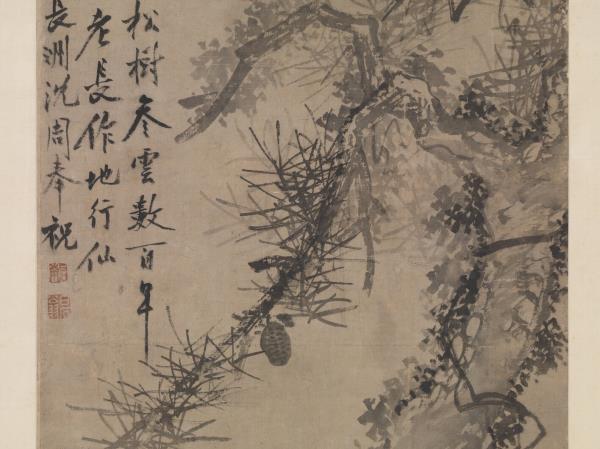 松樹参雲數百年
老長作地行仙
長洲沈周奉祝